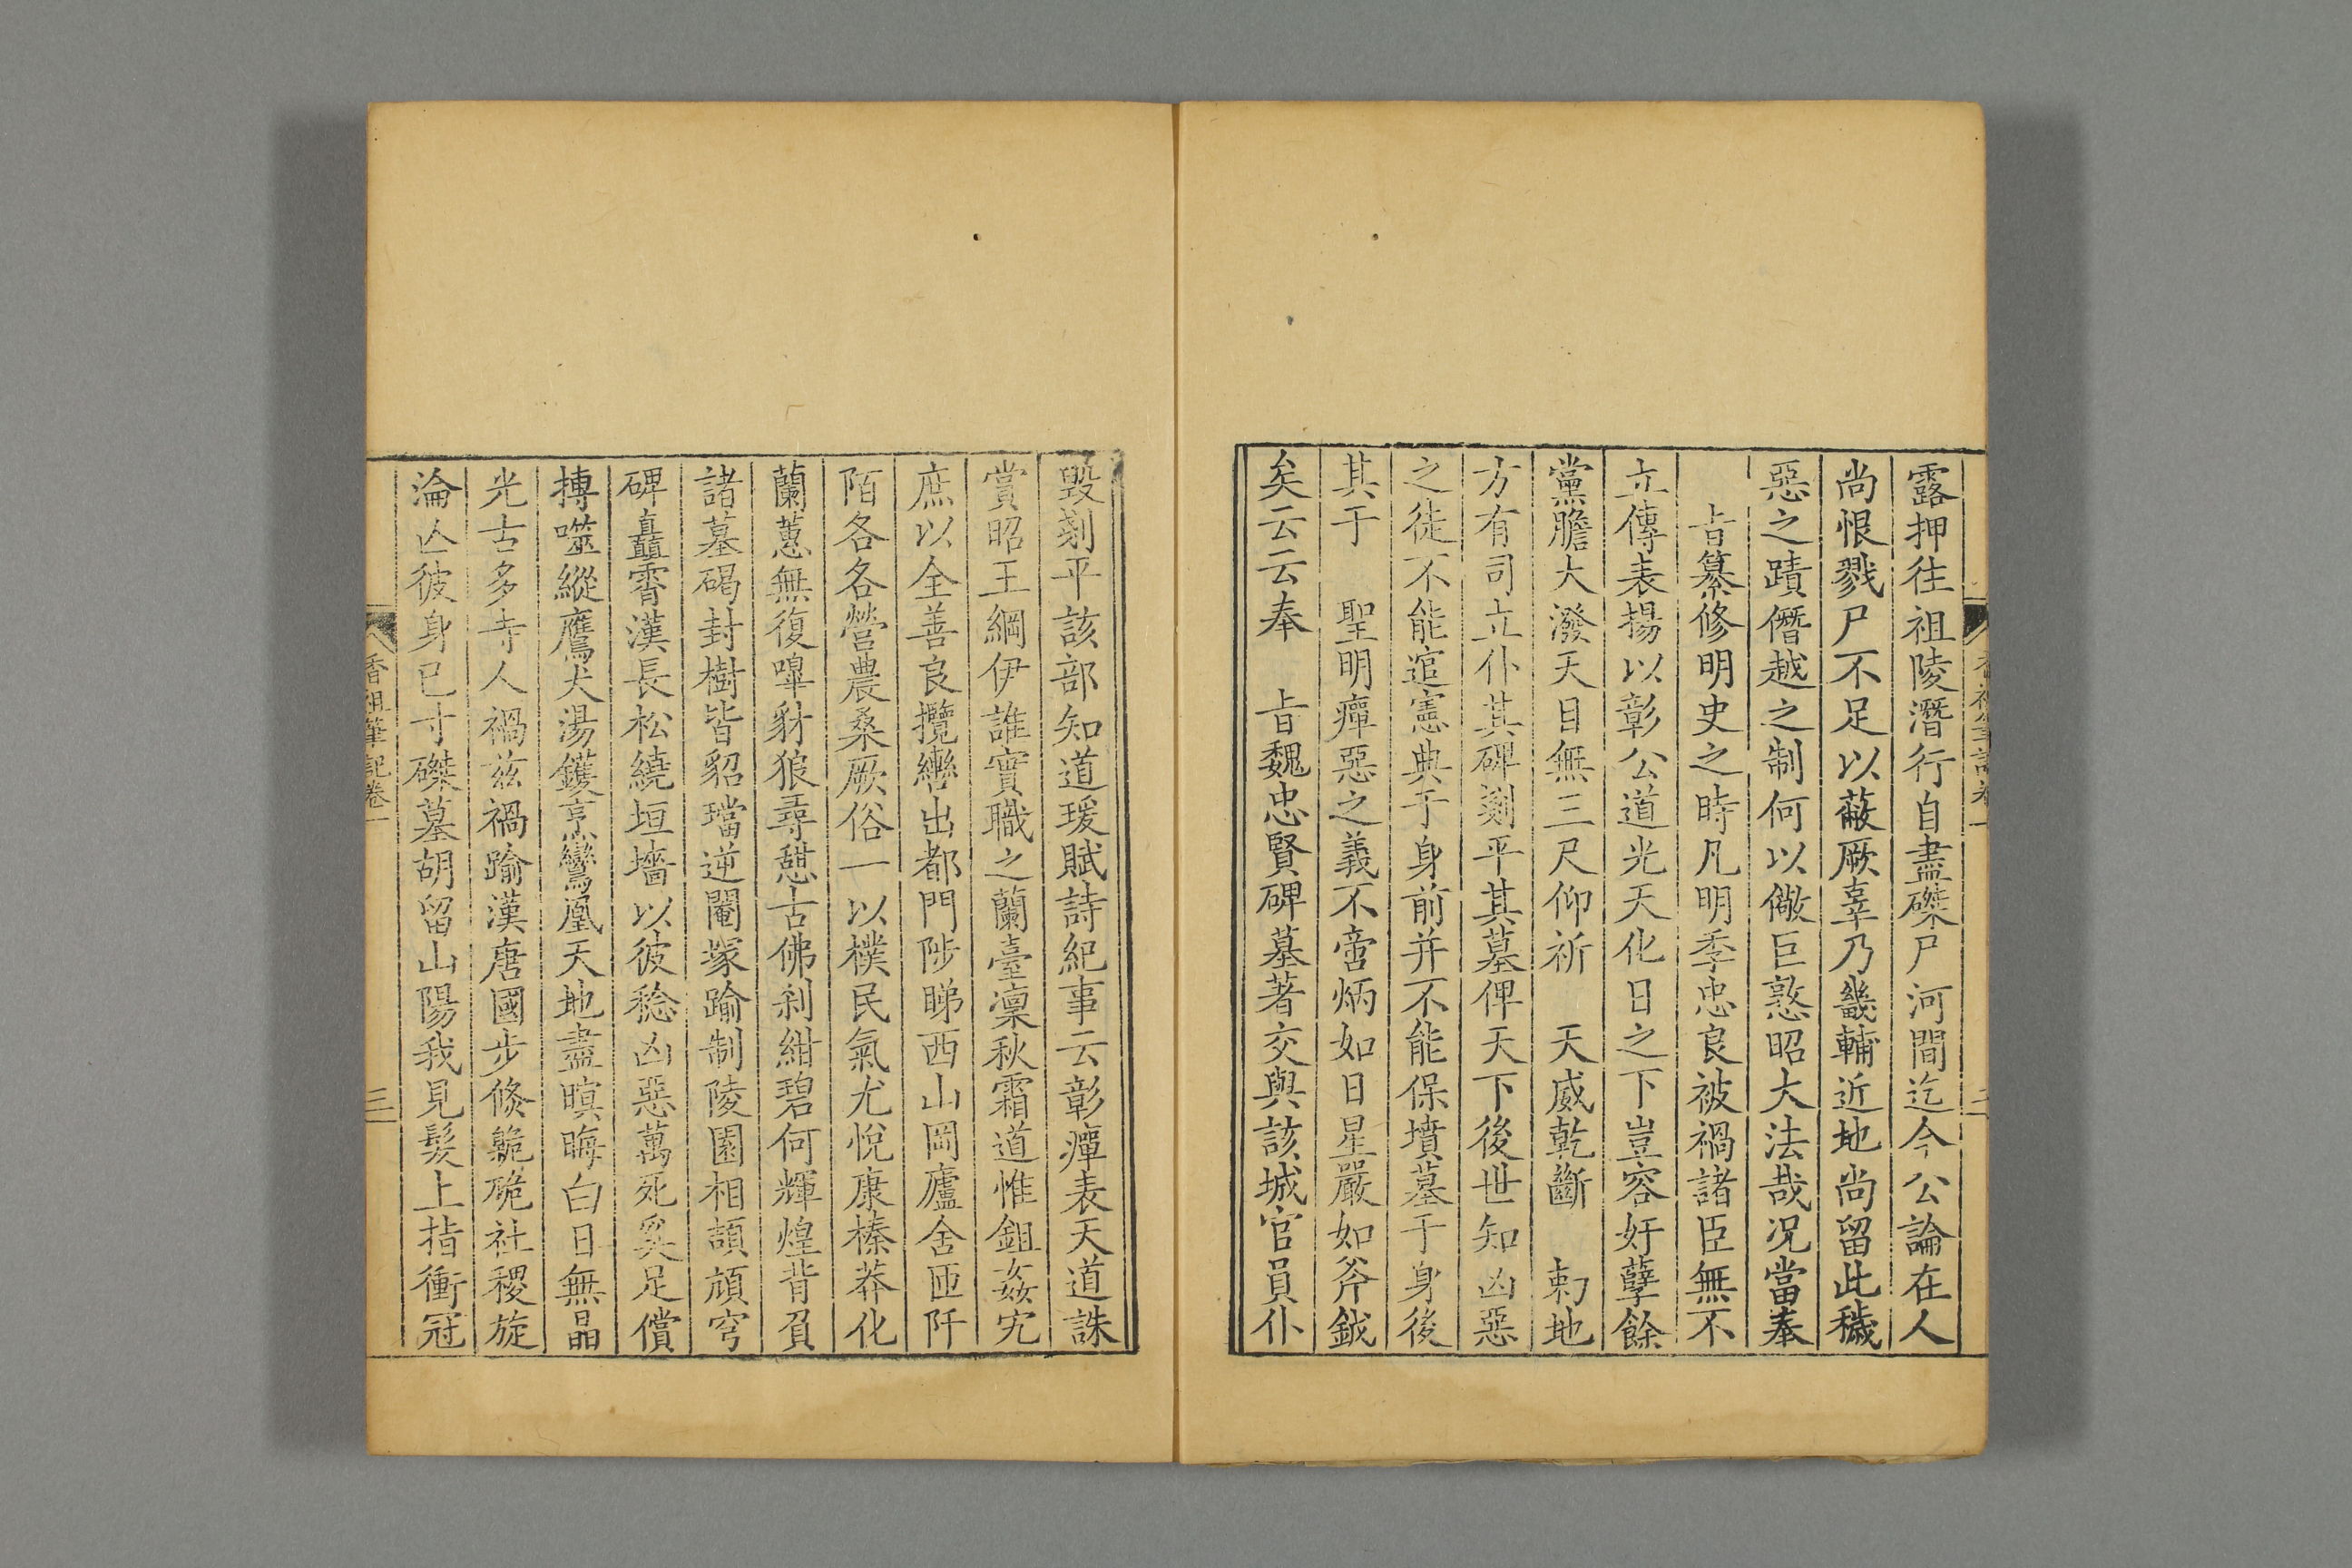 露押往祖陵潛行自盡磔尸河間迄今公論在人
尚恨戮尸不足以蔽厥辜乃畿輔近地尚留此穢
惡之蹟僭越之制何以儆巨憝昭大法哉况當奉
旨纂修明史之時凡明季忠良被禍諸臣無不
立傳表揚以彰公道光天化日之下豈容奸孽餘
黨膽大潑天目無三尺仰祈　天威乾斷　勅地
方有司立仆其碑剗平其墓俾天下後世知凶惡
之徒不能逭憲典于身前并不能保墳墓于身後
其于　聖明癉惡之義不啻炳如日星嚴如斧鉞
矣云云奉　旨魏忠賢碑墓著交與該城官員仆
毀剗平該部知道瑗賦詩紀事云彰癉表天道誅
賞昭王綱伊誰實職之蘭臺凜秋霜道惟鉏姦宄
庶以全善良攬轡出都門陟睇西山岡廬舍匝阡
陌各各營農桑厥俗一以樸民氣尤悅康榛莽化
蘭蕙無復嘷豺狼尋憇古佛刹紺碧何輝煌背負
諸墓碣封樹皆貂璫逆閹塚踰制陵園相頡頏穹
碑矗霄漢長松繞垣墻以彼稔凶惡萬死奚足償
搏噬縱鷹犬湯鑊烹鸞凰天地盡暝晦白日無晶
光古多寺人禍茲禍踰漢唐國步倐臲硊社稷旋
淪亾彼身已寸磔墓胡留山陽我見髮上指衝冠
香祖筆記卷一
三